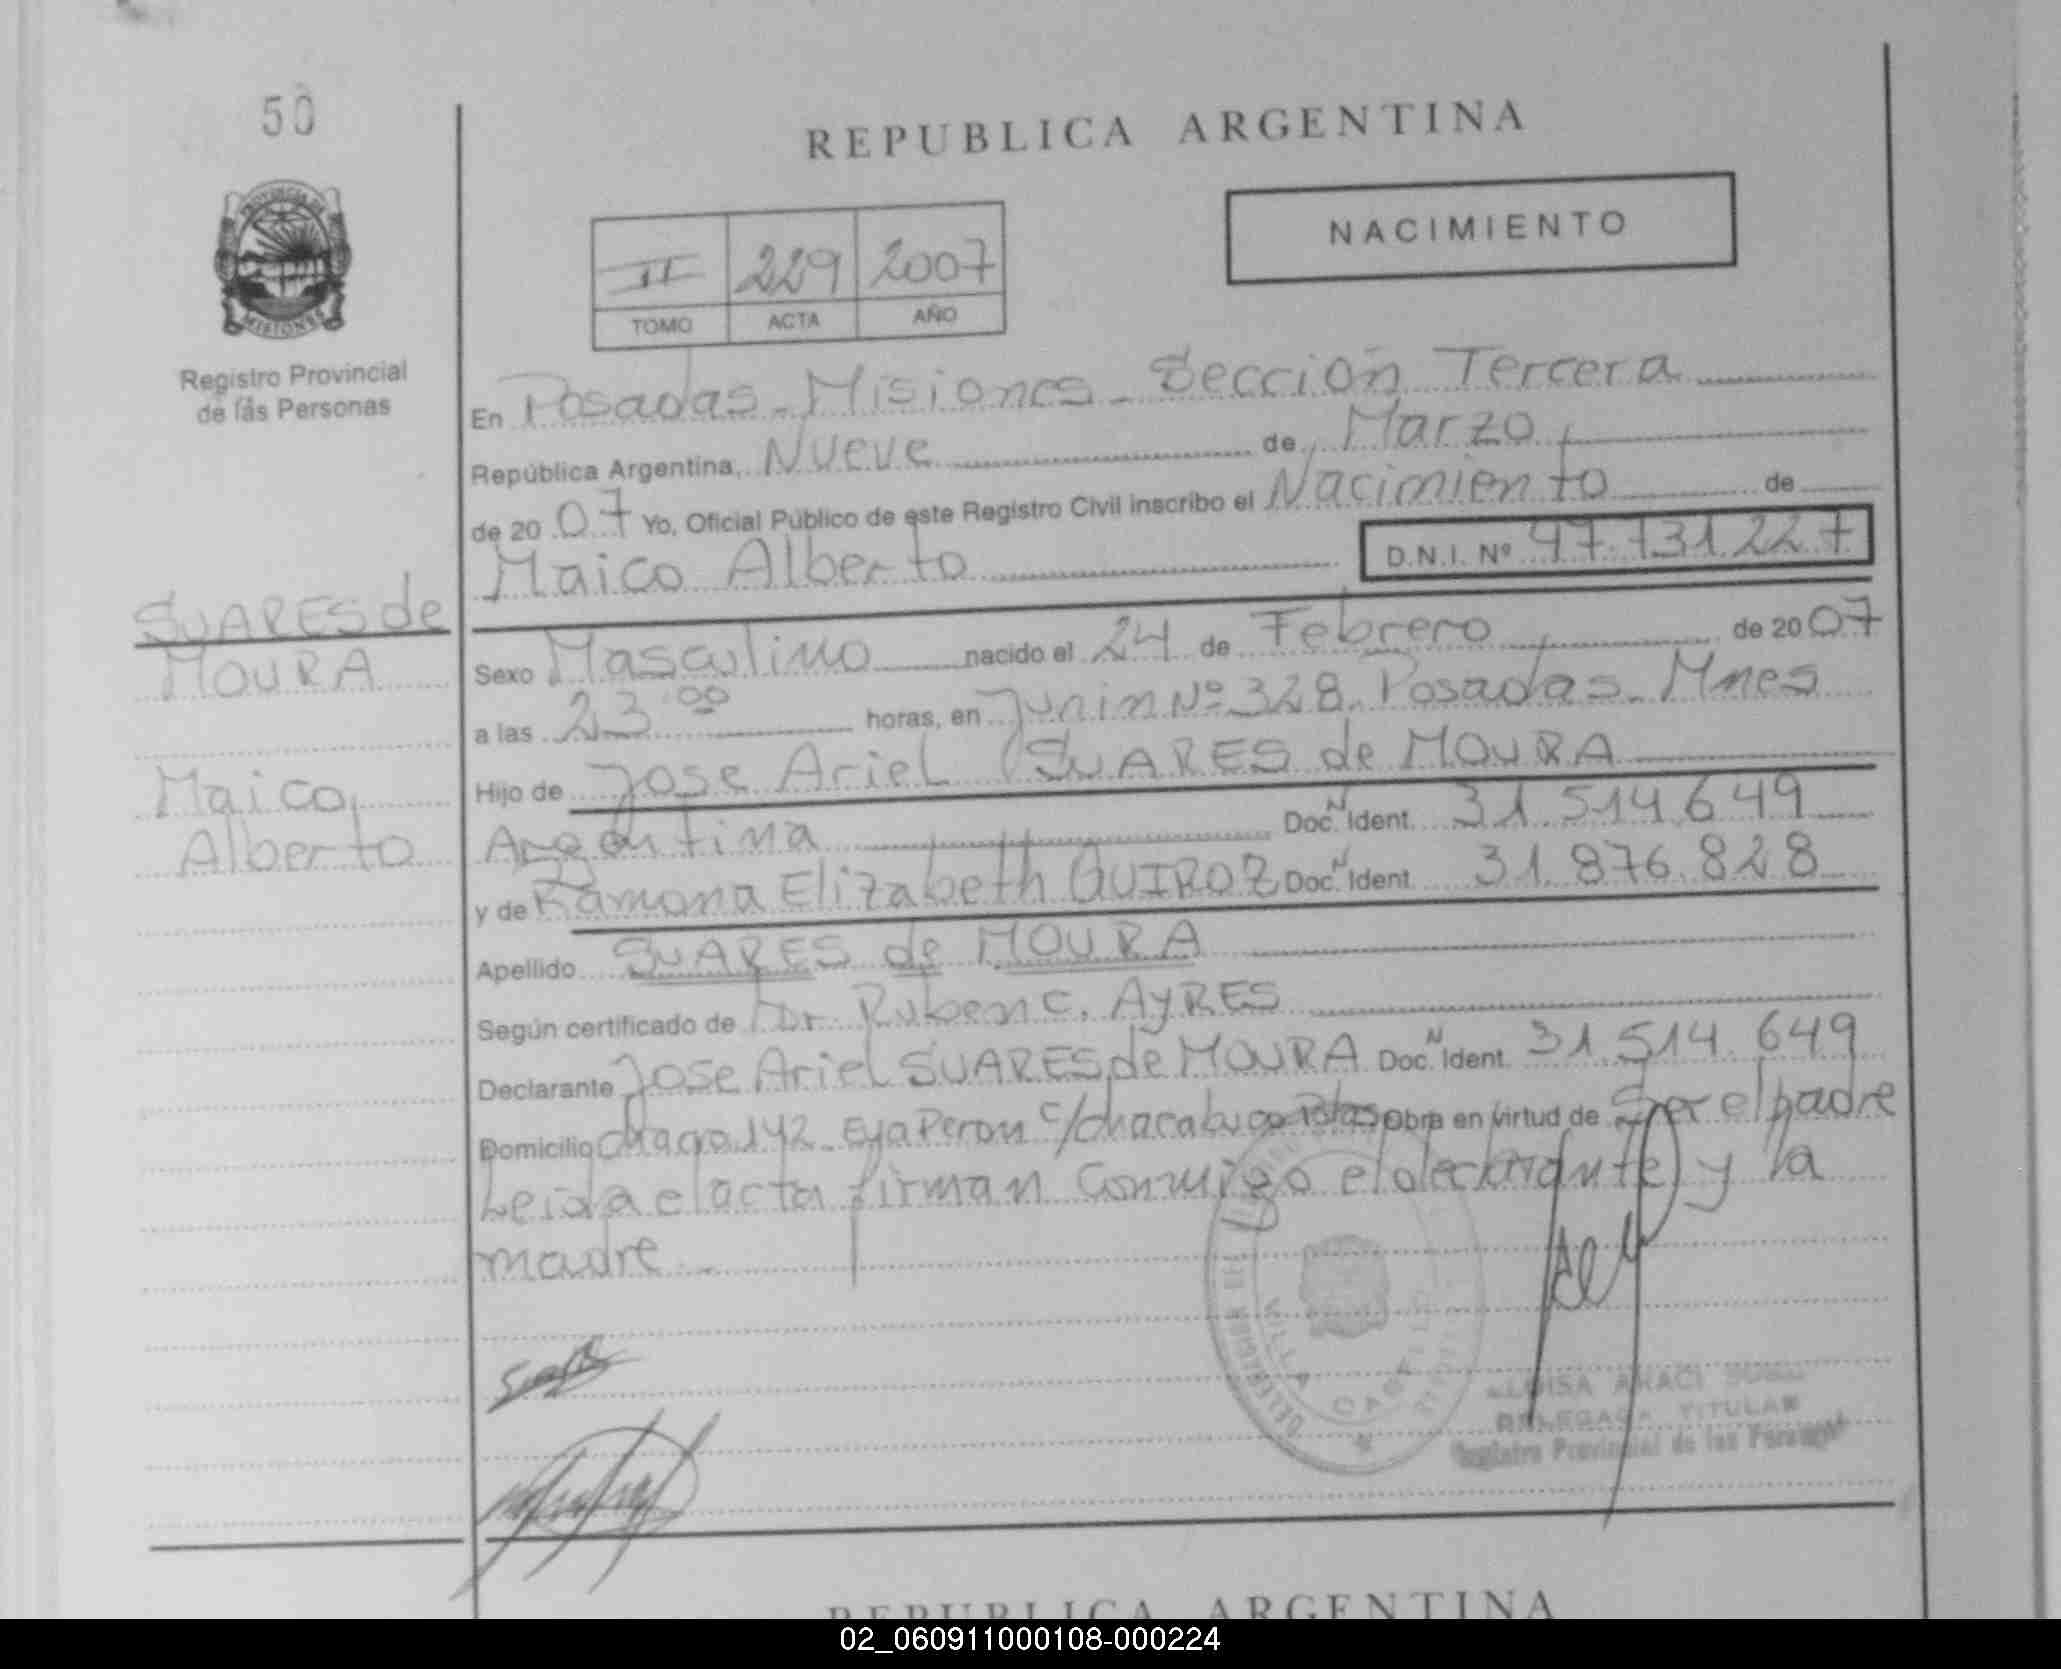 50
REPUBLICA ARGENTINA
NACIMIENTO
PROVINCIA DE
MISIONES
II 229 2007
TOMO ACTA AÑO
Registro Provincial
de las Personas
En Posadas - Misiones - Sección Tercera
República Argentina, Nueve de Marzo
de 2007 Yo, Oficial Público de este Registro Civil inscribo el Nacimiento de
Maico Alberto D.N.I. Nº 47.731.227
SUARES de
MOURA
Maico
Alberto
Sexo Masculino nacido el 24 de Febrero de 2007
a las 23:00 horas, en Junin Nº 328. Posadas - Mnes
Hijo de Jose Ariel SUARES de MOURA
Argentina Doc. N Ident. 31.514.649
y de Ramona Elizabeth QUIROZ Doc. N Ident. 31.876.828
Apellido SUARES de MOURA
Según certificado de Dr. Ruben C. AyRES
Declarante Jose Ariel SUARES de MOURA Doc. N Ident. 31.514.649
Domicilio Chacra 142 - Eva Peron c/chacabuco Pdas Obra en virtud de Ser el padre
Leida el acta firman Conmigo el declarante y la
madre.
VILLA CABELLO
LUISA ARACI
DELEGADA TITULAR
Registro Provincial de las Personas
REPUBLICA ARGENTINA
02_060911000108-000224